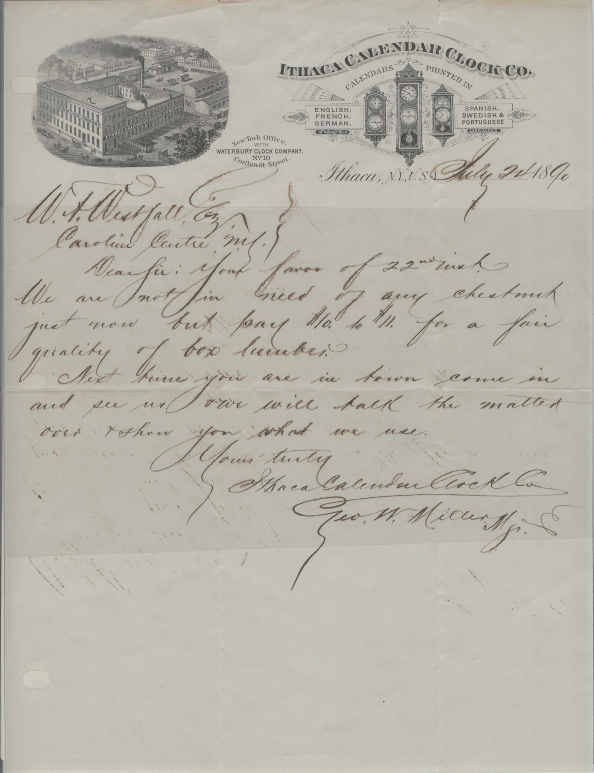 ITHACA CALENDAR CLOCK CO.
CALENDARS PRINTED IN
ENGLISH,
FRENCH,
GERMAN,
SPANISH,
SWEDISH &
PORTUGUESE
LANGUAGES.
New York Office,
WITH
WATERBURY CLOCK COMPANY.
No 10
Cortlandt Street.
Ithaca, N.Y. U.S. July 24 1890
W. A. Westfall, Esq
Caroline Centre, N.Y.
Dear Sir: Your favor of 22nd inst.
We are not in need of any chestnut
just now but pay $10. to $11. for a fair
quality of box lumber.
Next time you are in town come in
and see us & we will talk the matter
over & show you what we use.
Yours truly
Ithaca Calendar Clock Co
Geo. W. Miller, Mgr.